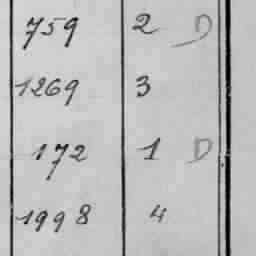 759 2 D
1269 3
172 1 D
1998 4